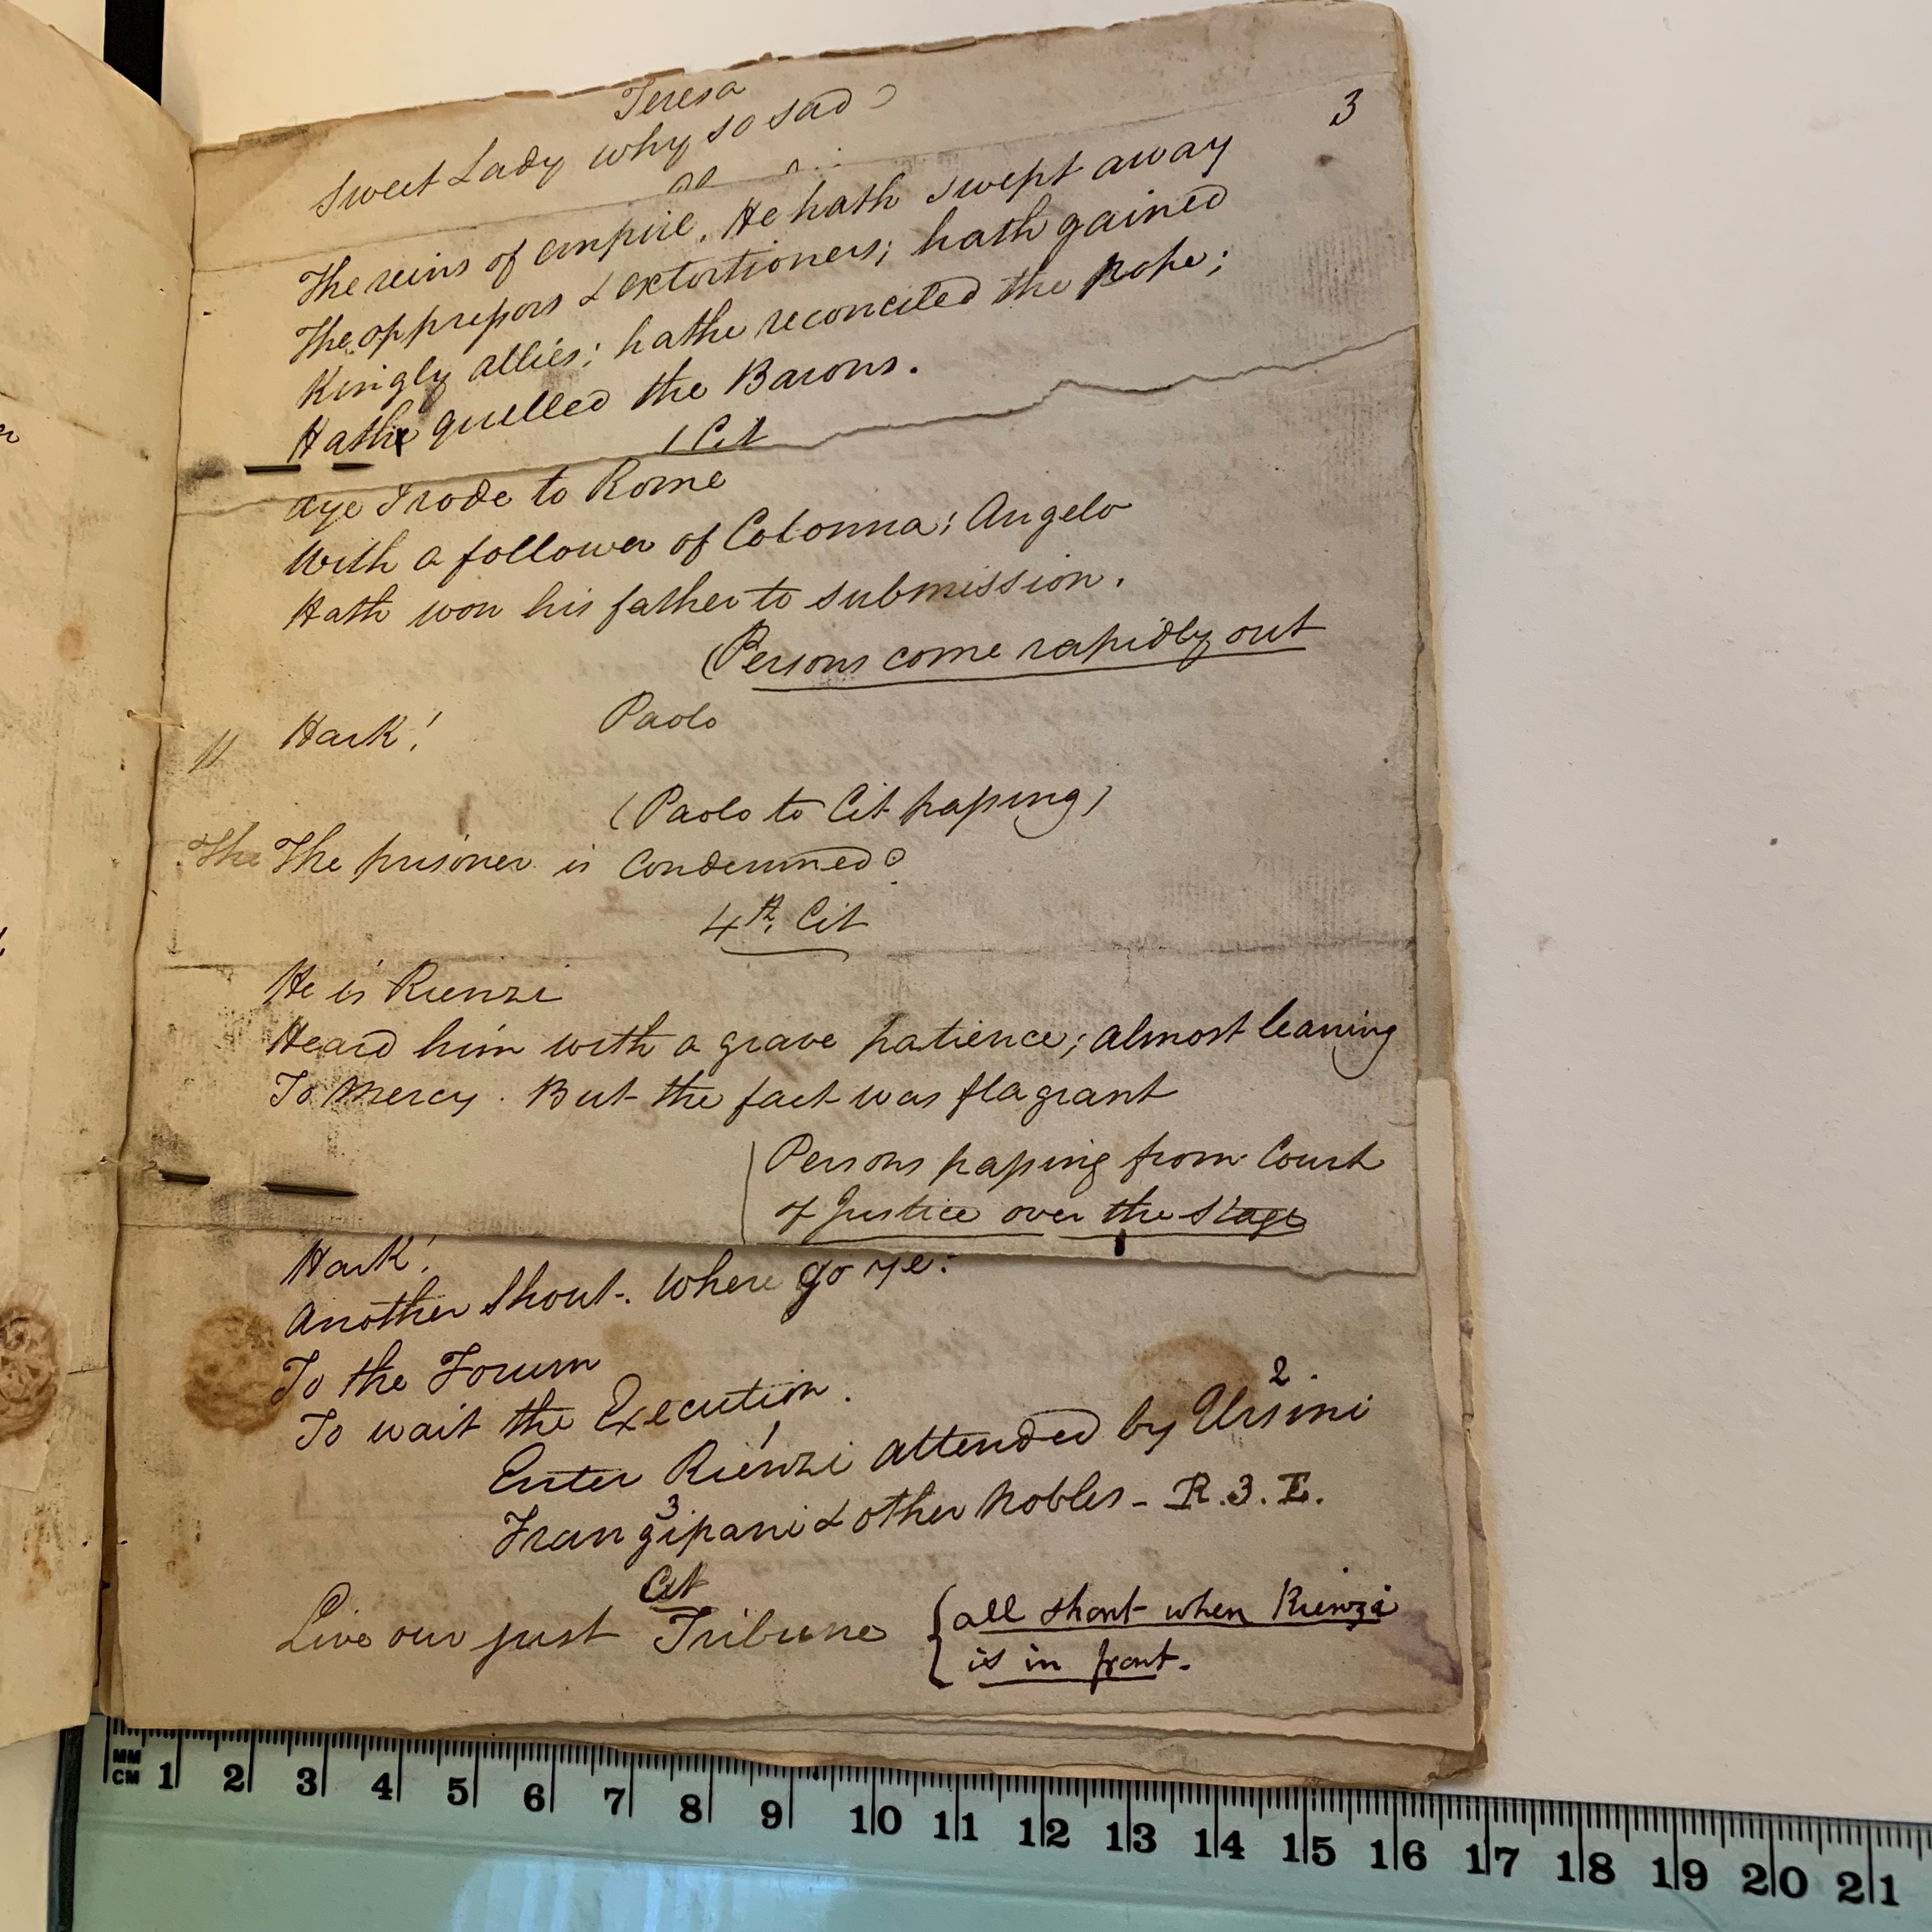 Teresa
3
Sweet Lady why so sad?
The reins of empire. He hath swept away
The oppressors & extortioners; hath gained
Kingly allies; hathe reconciled the Pope;
Hath quelled the Barons.
1 Cit
aye I rode to Rome
With a follower of Colonna; Angelo
Hath won his father to submission.
(Persons come rapidly out
Paolo
H Hark!
(Paolo to Cit passing)
The The prisoner is Condemned?
4th. Cit
He is Rienzi
Heard him with a grave patience; almost leaning
To Mercy. But the fact was flagrant
Persons passing from Court
of Justice over the Stage
Hark!
Another Shout. Where go ye:
To the Forum
To wait the Execution.
2.
1
Enter Rienzi attended by Ursini
3
Frangipani & other Nobles - R.3.E.
Cit
Live our just Tribune {all shout when Rienzi
is in front.
MM
CM 1 2 3 4 5 6 7 8 9 10 11 12 13 14 15 16 17 18 19 20 21